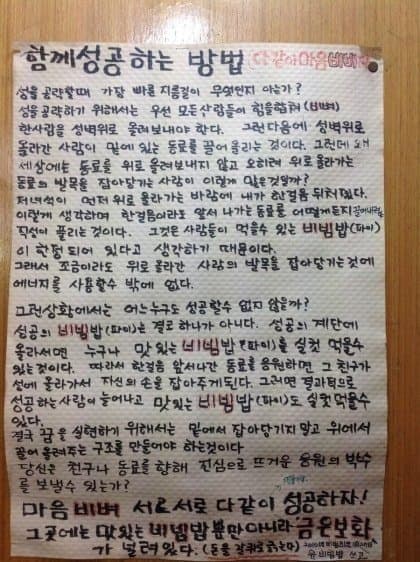 함께성공하는 방법 다같이마음비비자
성을 공략할때 가장 빠른 지름길이 무엇인지 아는가?
성을 공략하기 위해서는 우선 모든사람들이 힘을합해 (비벼)
한사람을 성벽위로 올려보내야 한다. 그런다음에 성벽위로
올라간 사람이 밑에 있는 동료를 끌어 올리는 것이다. 그런데 왜
세상에는 동료를 위로 올려보내지 않고 오히려 위로 올라가는
동료의 발목을 잡아당기는 사람이 이렇게 많은것일까?
저녀석이 먼저 위로 올라가는 바람에 내가 한걸음 뒤처졌다.
이렇게 생각하며 한걸음이라도 앞서 나가는 동료를 어떻게든지 끌어내려야
직성이 풀리는 것이다. 그것은 사람들이 먹을수 있는 비빔밥(파이)
이 한정 되어 있다고 생각하기 때문이다.
그래서 조금이라도 위로 올라간 사람의 발목을 잡아당기는것에
에너지를 사용할수 밖에 없다.
그런상황에서는 어느누구도 성공할수 없지 않은가?
성공의 비빔밥(파이)는 결코 하나가 아니다. 성공의 계단에
올라서면 누구나 맛있는 비빔밥(파이)를 실컷 먹을수
있는것이다. 따라서 한걸음 앞서나간 동료를 응원하면 그 친구가
성에 올라가서 자신의 손을 잡아주게된다. 그러면 결과적으로
성공하는사람이 늘어나고 맛있는 비빔밥(파이)도 실컷 먹을수
있다.
결국 꿈을 실현하기 위해서는 밑에서 잡아당기지 말고 위에서
끌어 올려주는 구조를 만들어야 하는것이다
당신은 친구나 동료를 향해 진심으로 뜨거운 응원의 박수
를 보낼수 있는가?
마음 비벼 서로서로 다같이 성공하자!
그곳에는 맛있는 비빔밥뿐만아니라 금은보화
가 널려있다. (돈을 갈퀴로 긁는다)
유비빔밥 쓰고